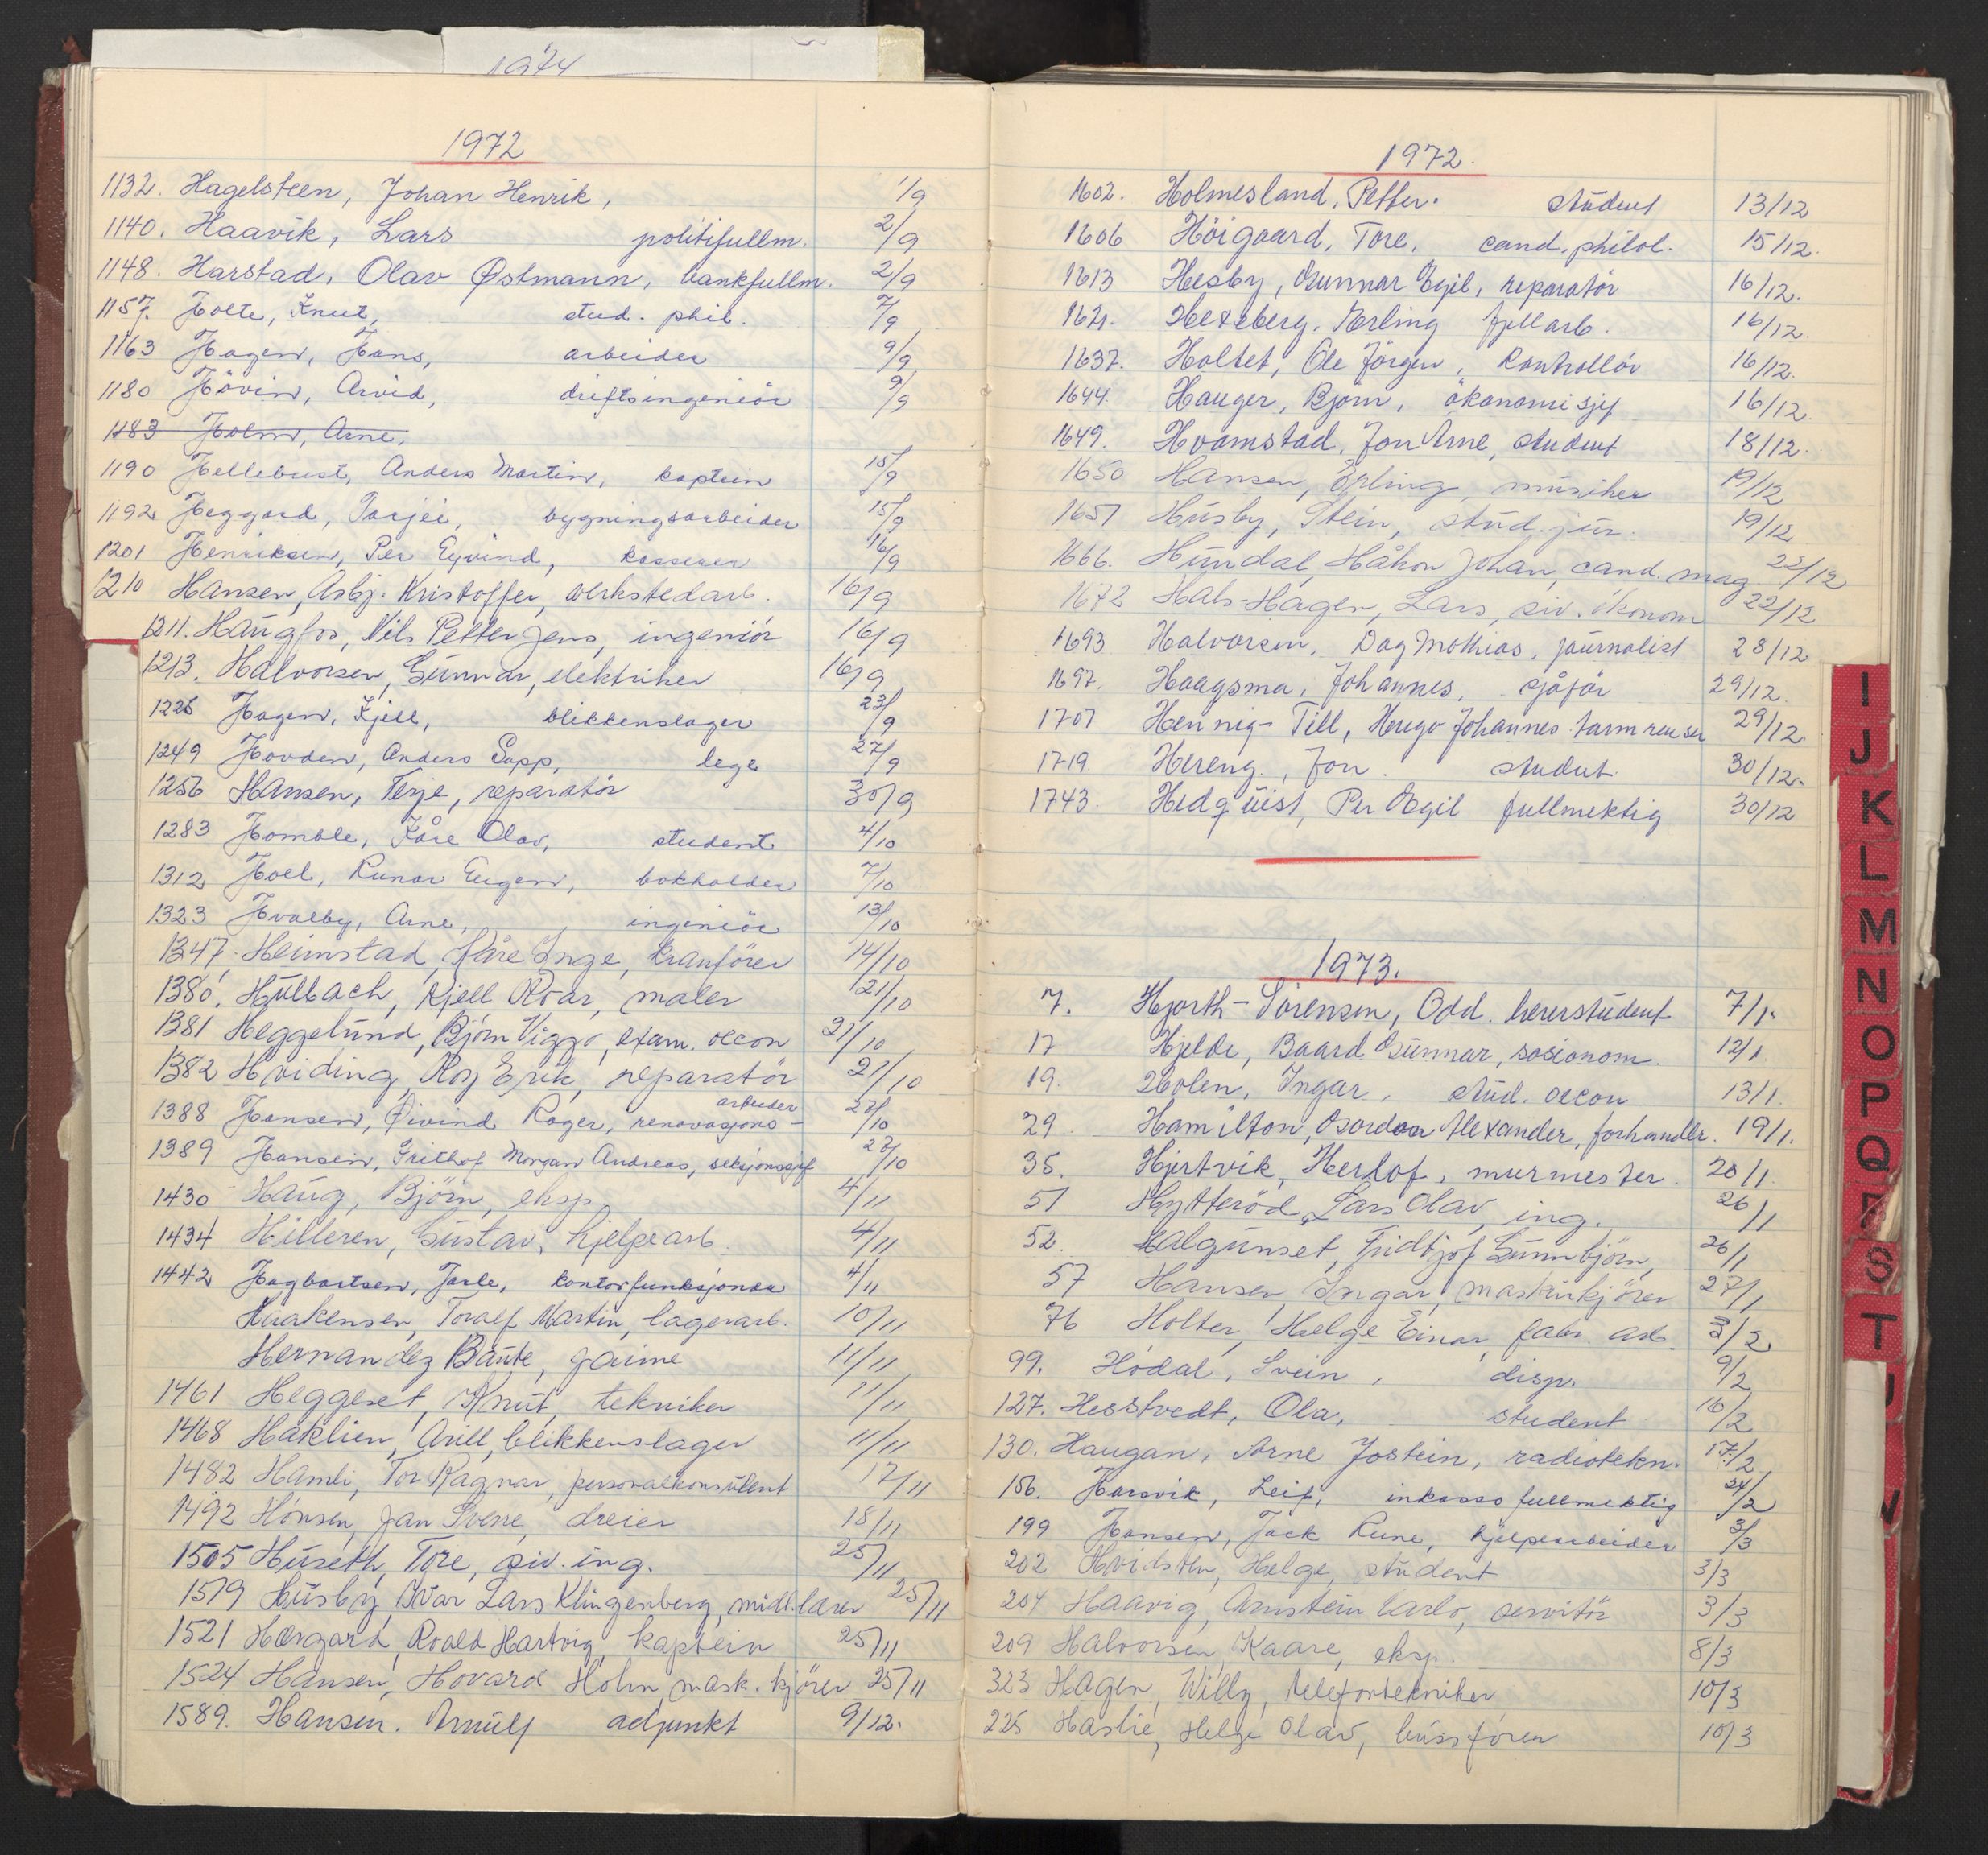 1974
1972
1132. Hagelsteen, Johan Henrik, 1/9
1140. Haavik, Lars politifullm. 2/9
1148. Harstad, Olav Østmann, bankfullm. 2/9
1157. Holte, Knut, stud. phil. 7/9
1163 Hagen, Hans, arbeider 9/9
1180 Hövin, Arvid, driftsingeniör 9/9
1183 Holm, Arne,
1190 Hellebust, Anders Martin, kaptein 15/9
1192 Heggard, Tarjei, bygningsarbeider 15/9
1201 Henriksen, Per Eyvind, kasserer 16/9
1210 Hansen, Asbj. Kristoffer, verkstedarb. 16/9
1211. Haugfos, Nils Petter Jens, ingeniör 16/9
1213. Halvorsen, Gunnar, elektriker 16/9
1226 Hagen, Kjell, blikkenslager 23/9
1249 Hovden, Anders Sapp, lege 27/9
1256 Hansen, Terje, reparatör 30/9
1283 Homble, Kåre Olav, student 4/10
1312 Hoel, Runar Eugen, bokholder 7/10
1323 Hvalby, Arne, ingeniör 13/10
1347. Heimstad, Kåre Inge, kranförer 14/10
1380. Hülbach, Kjell Roar, maler 21/10
1381 Heggelund, Björn Viggo, exam. oecon 21/10
1382 Hviding, Roy Erik, reparatör 21/10
1388 Hansen, Øivind Roger, renovasjons- arbeider 27/10
1389 Hansen, Frithof Morgan Andreas, seksjonssjef 27/10
1430 Haug, Björn, eksp. 4/11
1434 Hilleren, Gustav, hjelpearb. 4/11
1442 Hagbartsen, Jarle, kontorfunksjonær 4/11
Haakensen, Toralf Martin, lagerarb. 10/11
Hernandez Baute, Jaime 11/11
1461 Heggeset, Knut, tekniker 11/11
1468 Haklien, Arill, blikkenslager 11/11
1482 Hamli, Tor Ragnar, personalkonsulent 17/11
1492 Hönsen, Jan Sverre, dreier 18/11
1505 Huseth, Tore, siv. ing. 25/11
1519 Husby, Ivar Lars Klingenberg, midl. lærer 25/11
1521 Horgard, Roald Hartvig, kaptein 25/11
1524 Hansen, Hovard Holm, mask. kjörer 25/11
1589. Hansen. Arnulf adjunkt 9/12.
1972.
1602. Holmesland, Petter. student 13/12
1606 Höigaard, Tore, cand. philol. 15/12.
1613 Hesby, Gunnar Egil, reparatör 16/12.
1621. Hexeberg, Erling fjellarb. 16/12.
1637. Holtet, Ole Jörgen, kontrollör 16/12.
1644. Hauger, Bjørn, økonomisjef 16/12
1649. Hvamstad, Jon Arne, student 18/12.
1650 Hansen, Erling, musiker 19/12
1651 Husby, Stein, stud. jur. 19/12
1666. Hundal, Håkon Johan, cand. mag. 22/12
1672 Hals-Hagen, Lars, siv. økonom 22/12
1693 Halvorsen, Dag Mathias, journalist 28/12
1697. Haagsma, Johannes, sjåför 29/12.
1707 Hennig-Till, Hugo Johannes tarmrenser 29/12.
1719 Hereng, Jon. student. 30/12.
1743. Hedquist, Per Egil fullmektig 30/12
1973.
7. Hjorth-Sörensen, Odd. lærerstudent 7/1.
17 Hjelde, Baard Gunnar, sosionom. 12/1
19. Holen, Ingar, stud. oecon 13/1.
29 Hamilton, Gordon Alexander, forhandler. 19/1.
35. Hjertvik, Herlof, murmester. 20/1
51 Hytteröd, Lars Olav, ing. 26/1
52. Halgunset, Fridtjof Gunnbjörn, 26/1
57 Hansen Ingar, maskinkjörer 27/1
76 Holter, Helge Einar, fabr. arb. 3/2
99. Hödal, Svein, disp. 9/2
127. Hesstvedt, Ola, student 16/2
130. Haugan, Arne Jostein, radiotekn. 17/2
156. Harsvik, Leif, inkassofullmektig 24/2
199 Hansen, Jack Rune, hjelpearbeider 3/3
202 Hvidsten, Helge, student 3/3
204 Haavig, Arnstein Carlo, servitör 3/3
209 Halvorsen, Kaare, eksp. 8/3
323 Hagen, Willy, telefontekniker 10/3
225 Haslie, Helge Olav, bussförer 10/3
I
J
K
L
M
N
O
P
Q
R
S
T